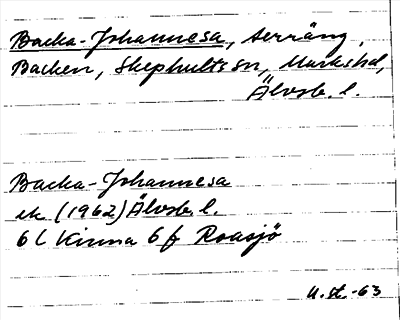 Backa-Johannesa, terräng,
Backen, Skephults sn, Marks hd,
Älvsb. l.
Backa-Johannesa
ek (1962) Älvsb. l.
6 C Kinna 6 f Roasjö
U. st. -63